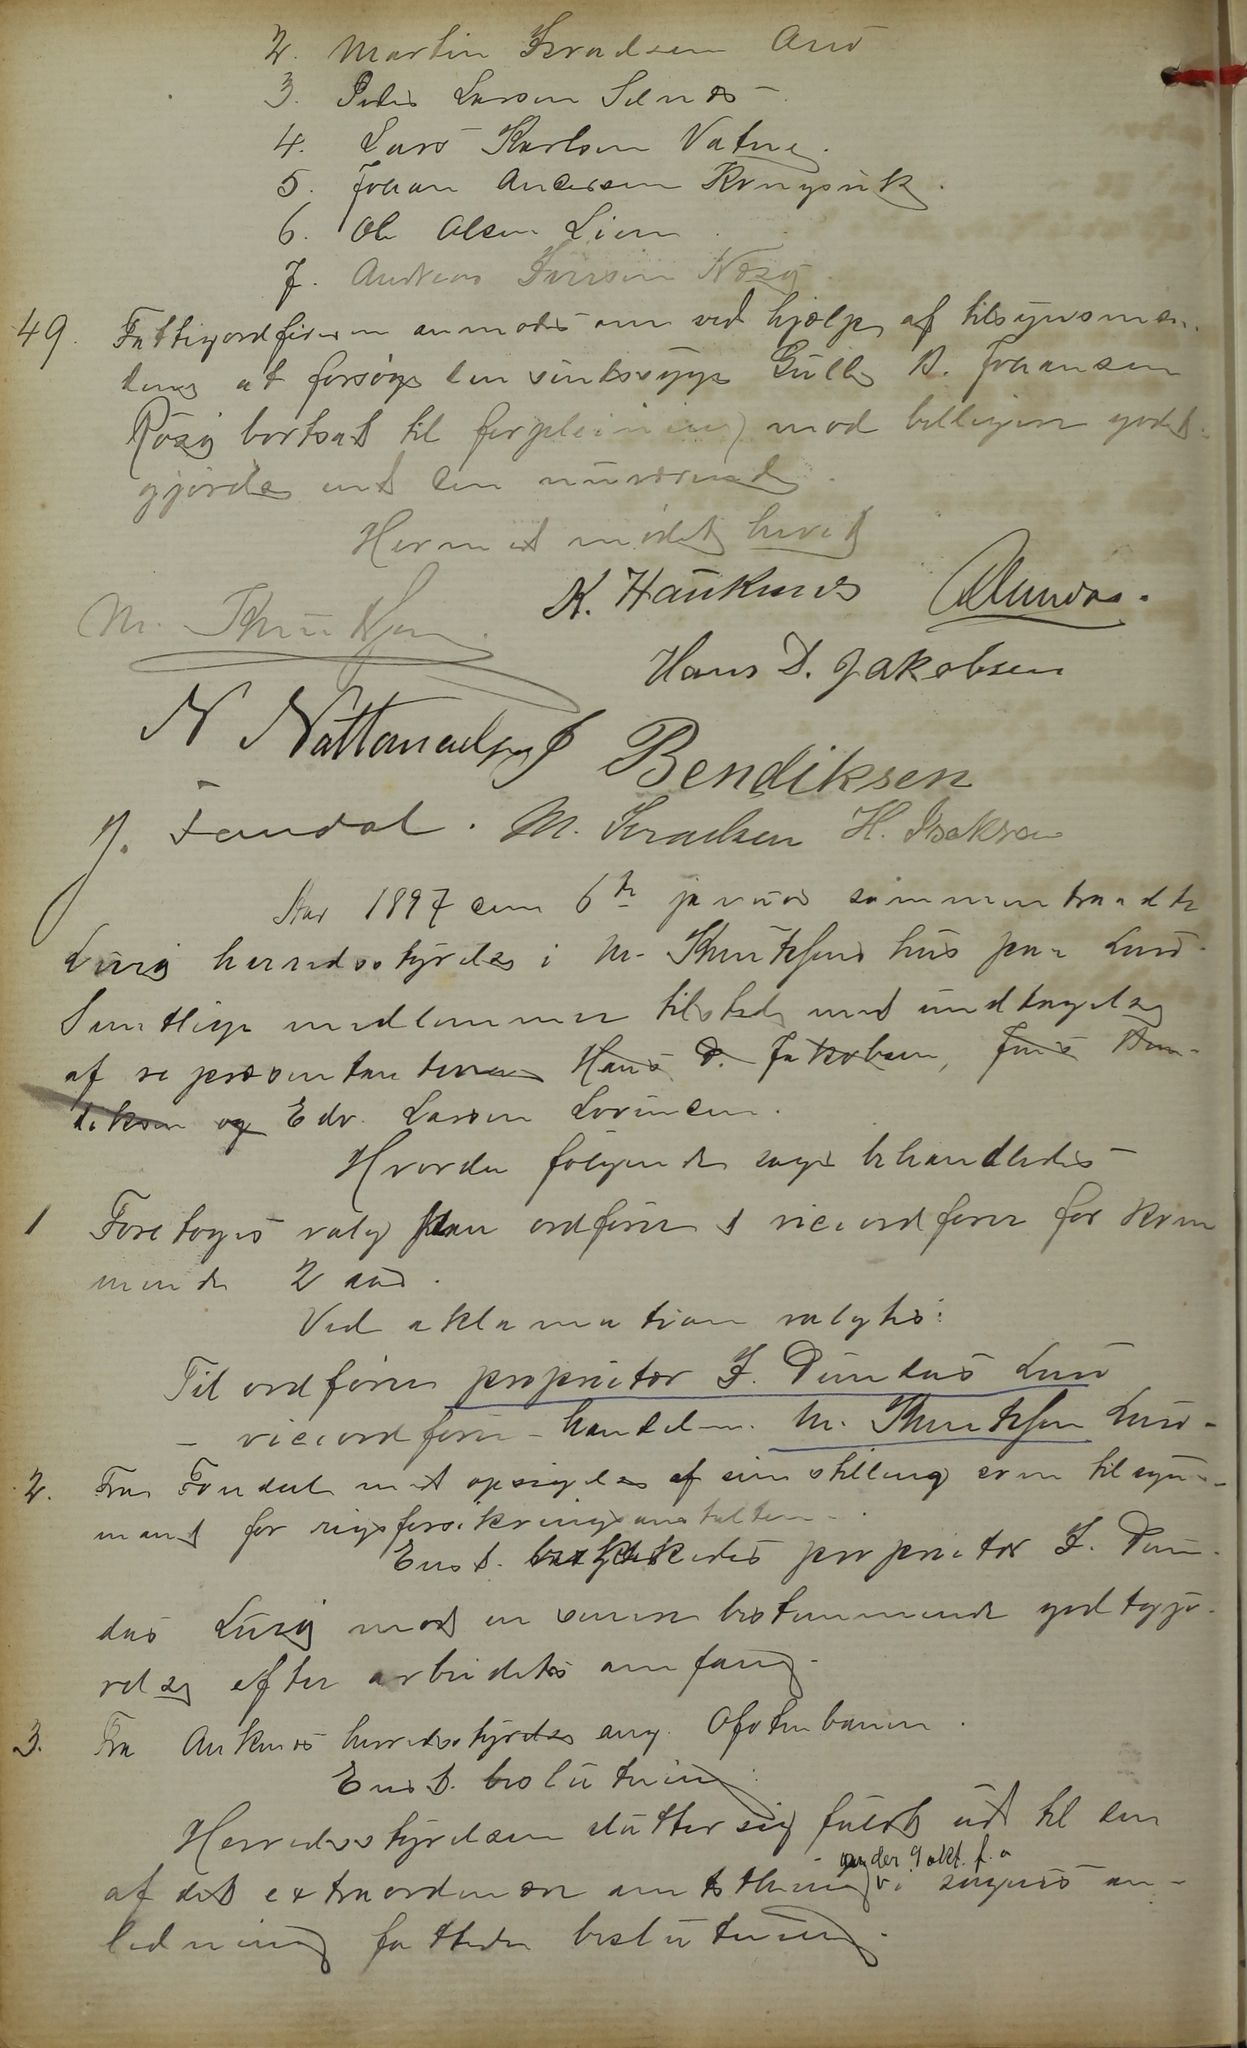 2. Martin Isradsen Aus
3. Peder Larsen Selnes
4. Lars Karlsen Vatne.
5. Johan Andersen Kongsvik.
6. Ole Olsen Liem
7. Andreas Næsø
49. Fattigordføreren anmodes om ved hjælp af tilsynsmæn-
dene at forsøge den sindssyge Gulle A. Johansen
Røsø bortsat til forpleining mod billigere godt-
gjørelse end den nuværende.
Hermed mødet hævet
M. Knutsen. K. Haukenes Dundas.
Hans D. Jakobsen
N Nattanaelsen J Bendiksen
J. Fondal. M. Israelsen H. Isaksen
Aar 1897 den 6te januar sammentraadte
Lurø herredsstyrelse i M. Knutsens hus paa Lurø.
Samtlige medlemmer tilstede med undtagelse
af repræsentanterne Hans D. Jakobsen, Jens Ben-
diksen og Edv. Larsen Lovunden.
Hvorda følgende sager behandledes
1 Foretoges valg paa ordfører & viceordfører for kom
mende 2 aar.
Ved aklamation valgtes:
Til ordfører proprietær I. Dundas Lurø
- viceordfører - handelsm. M. Knutsen Lurø -
2. Fra Fondal med opsigelse af sin stilling som tilsyns-
mand for rigsforsikringsanstalten.
Enst. proprietær I. Dun-
das Lurø mod en senere bestemmende godtgjø-
relse efter arbeidets omfang.
3. Fra Ankenes herredsstyrelse ang. Ofotenbanen.
Enst. beslutning:
Herredsstyrelsen slutter sig fuldt ud til den
under 9 okt. f. a
af det extraordinære amtsthing i sagens an-
ledning fattede beslutning.